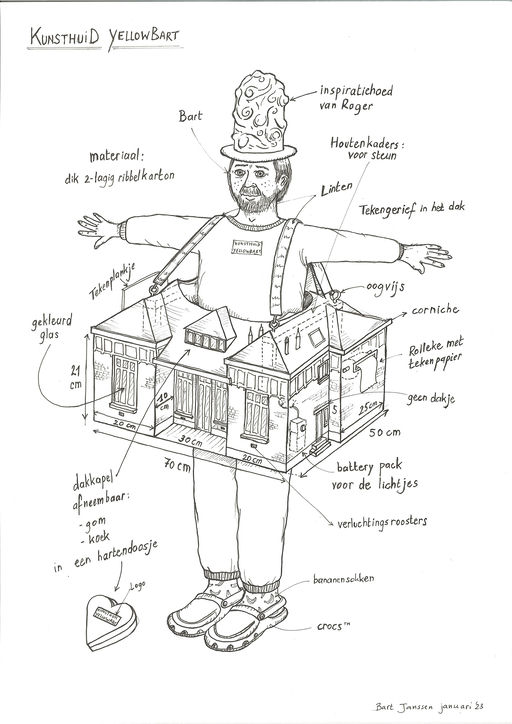 KUNSTHUID YELLOWBART
inspiratiehoed
van Roger
Bart
Houtenkaders:
voor steun
materiaal:
dik 2-lagig ribbelkarton
Linten
Tekengerief in het dak
KUNSTHUID
YELLOWBART
Tekenplankje
oogvijs
corniche
gekleurd
glas
Rolleke met
tekenpapier
21
cm
geen dakje
10
cm
5
25cm
20 cm
30 cm
20cm
50 cm
70 cm
battery pack
voor de lichtjes
dakkapel
afneembaar:
- gom
- koek
in een hartendoosje
verluchtingsroosters
Logo
bananensokken
KUNSTHUID
YELLOWBART
crocs™
Bart Janssen januari '23